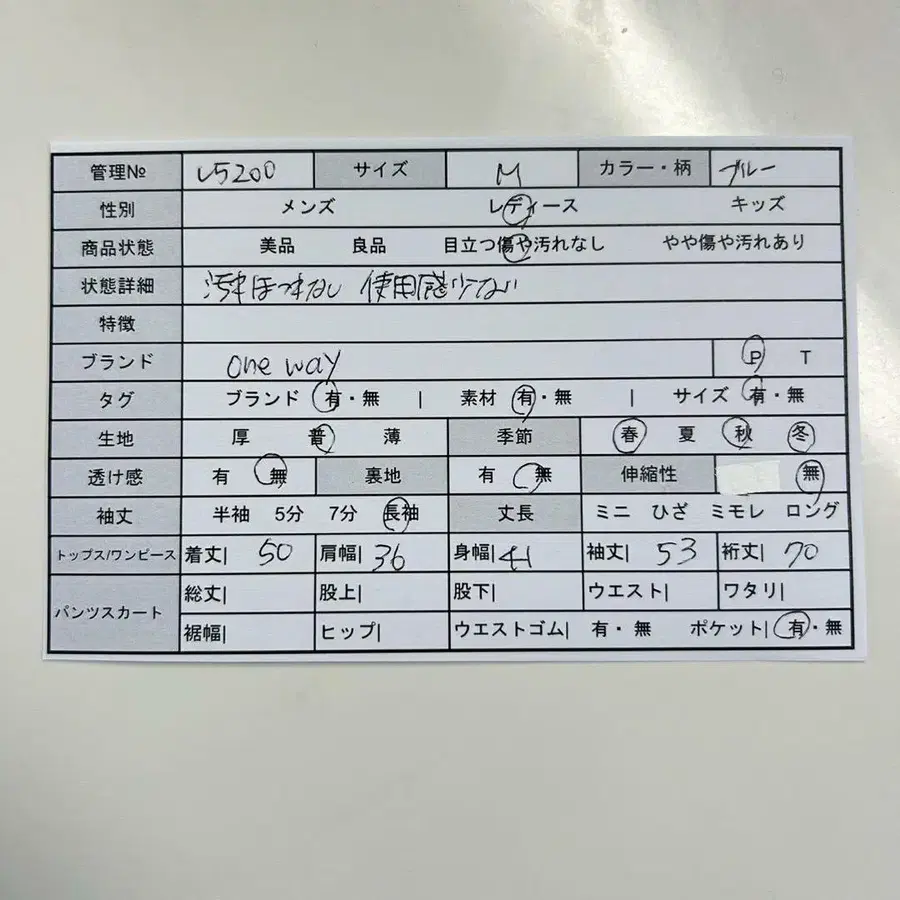 管理№ い5200 サイズ M カラー・柄 ブルー
性別 メンズ レディース キッズ
商品状態 美品 良品 目立つ傷や汚れなし やや傷や汚れあり
状態詳細 汚れほつれなし 使用感少ない
特徴
ブランド one way P T
タグ ブランド 有・無 | 素材 有・無 | サイズ 有・無
生地 厚 普 薄 季節 春 夏 秋 冬
透け感 有 無 裏地 有 無 伸縮性 無
袖丈 半袖 5分 7分 長袖 丈長 ミニ ひざ ミモレ ロング
トップス/ワンピース 着丈| 50 肩幅| 36 身幅| 41 袖丈| 53 裄丈| 70
パンツスカート 総丈| 股上| 股下| ウエスト| ワタリ|
裾幅| ヒップ| ウエストゴム| 有・無 ポケット| 有・無